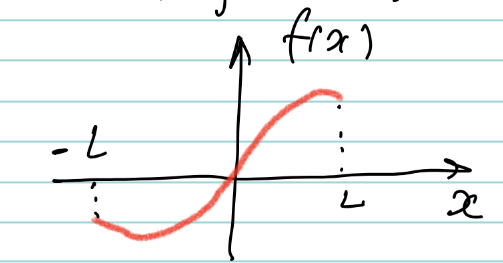 f(x)
-L
L
x